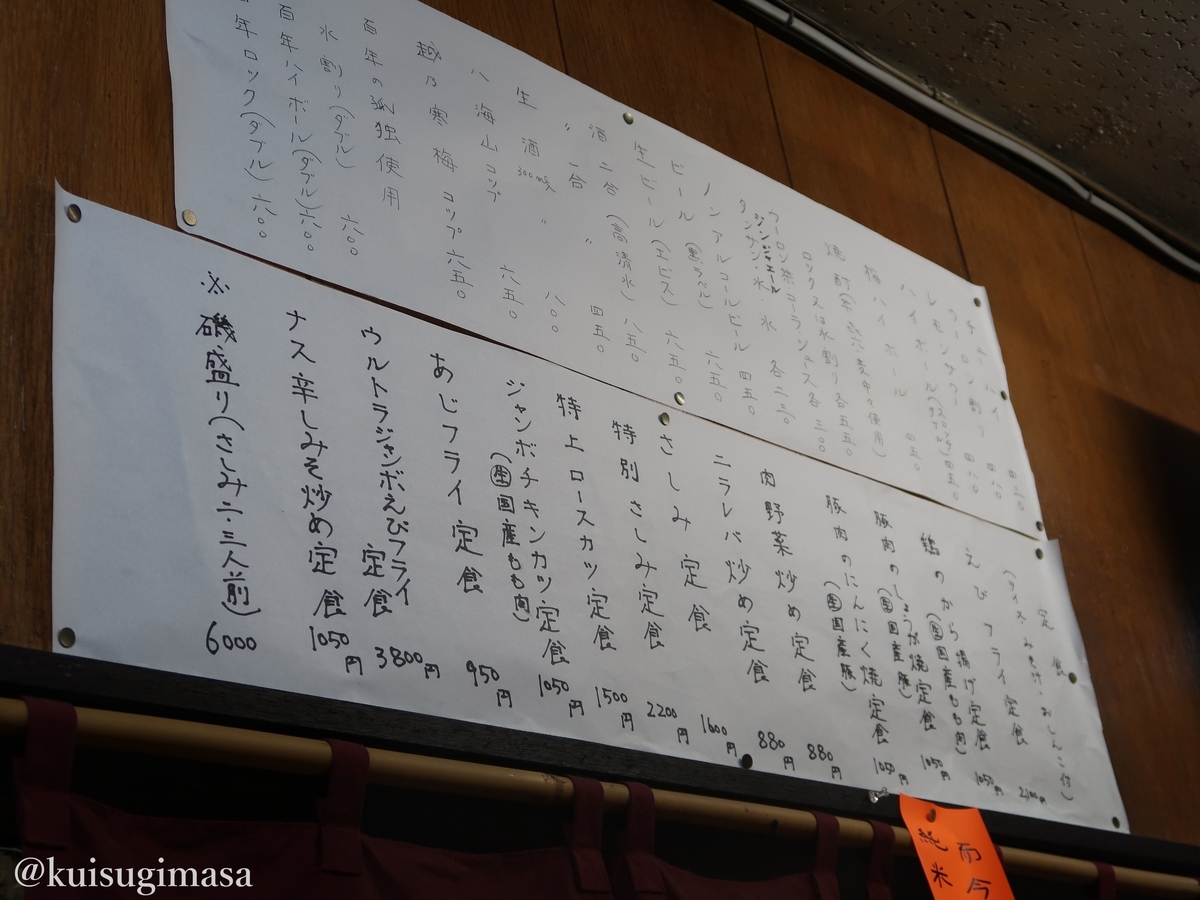 チューハイ 四二〇
ウーロン割り 四八〇
レモンサワー 四八〇
ハイボール(ダブル) 四五〇
ハイボール 四五〇
梅ハイ
焼酎(米 麦 使用)
ロック又は水割り各五五〇
ウーロン茶・コーラ・ジュース各 三〇〇
ジンジャエール
タンサン・水・氷 各二二〇
ノンアルコールビール 四五〇
ビール(黒ラベル) 六五〇
〃(ヱビス) 六五〇
生ビール
酒二合(高清水) 八五〇
〃 一合 〃 四五〇
生酒 300ml 〃 八〇〇
八海山コップ 六五〇
越乃寒梅 コップ 六五〇
百年の孤独使用
水割り(ダブル) 六〇〇
百年ハイボール(ダブル) 六〇〇
百年ロック(ダブル) 六〇〇
定食
(ライス・みそ汁・おしんこ付)
えびフライ定食 2200円
鶏のから揚げ定食 1050円
(国国産もも肉)
豚肉のしょうが焼定食 1050円
(国国産豚)
豚肉のにんにく焼定食 1050円
(国国産豚)
肉野菜炒め定食 880円
ニラレバ炒め定食 880円
さしみ定食 1600円
特別さしみ定食 2200円
特上ロースカツ定食 1500円
ジャンボチキンカツ定食 1050円
(国国産もも肉)
あじフライ定食 950円
ウルトラジャンボえびフライ定食 3800円
ナス辛しみそ炒め定食 1050円
※磯盛り(さしみ二・三人前) 6000
而今
純米
@kuisugimasa